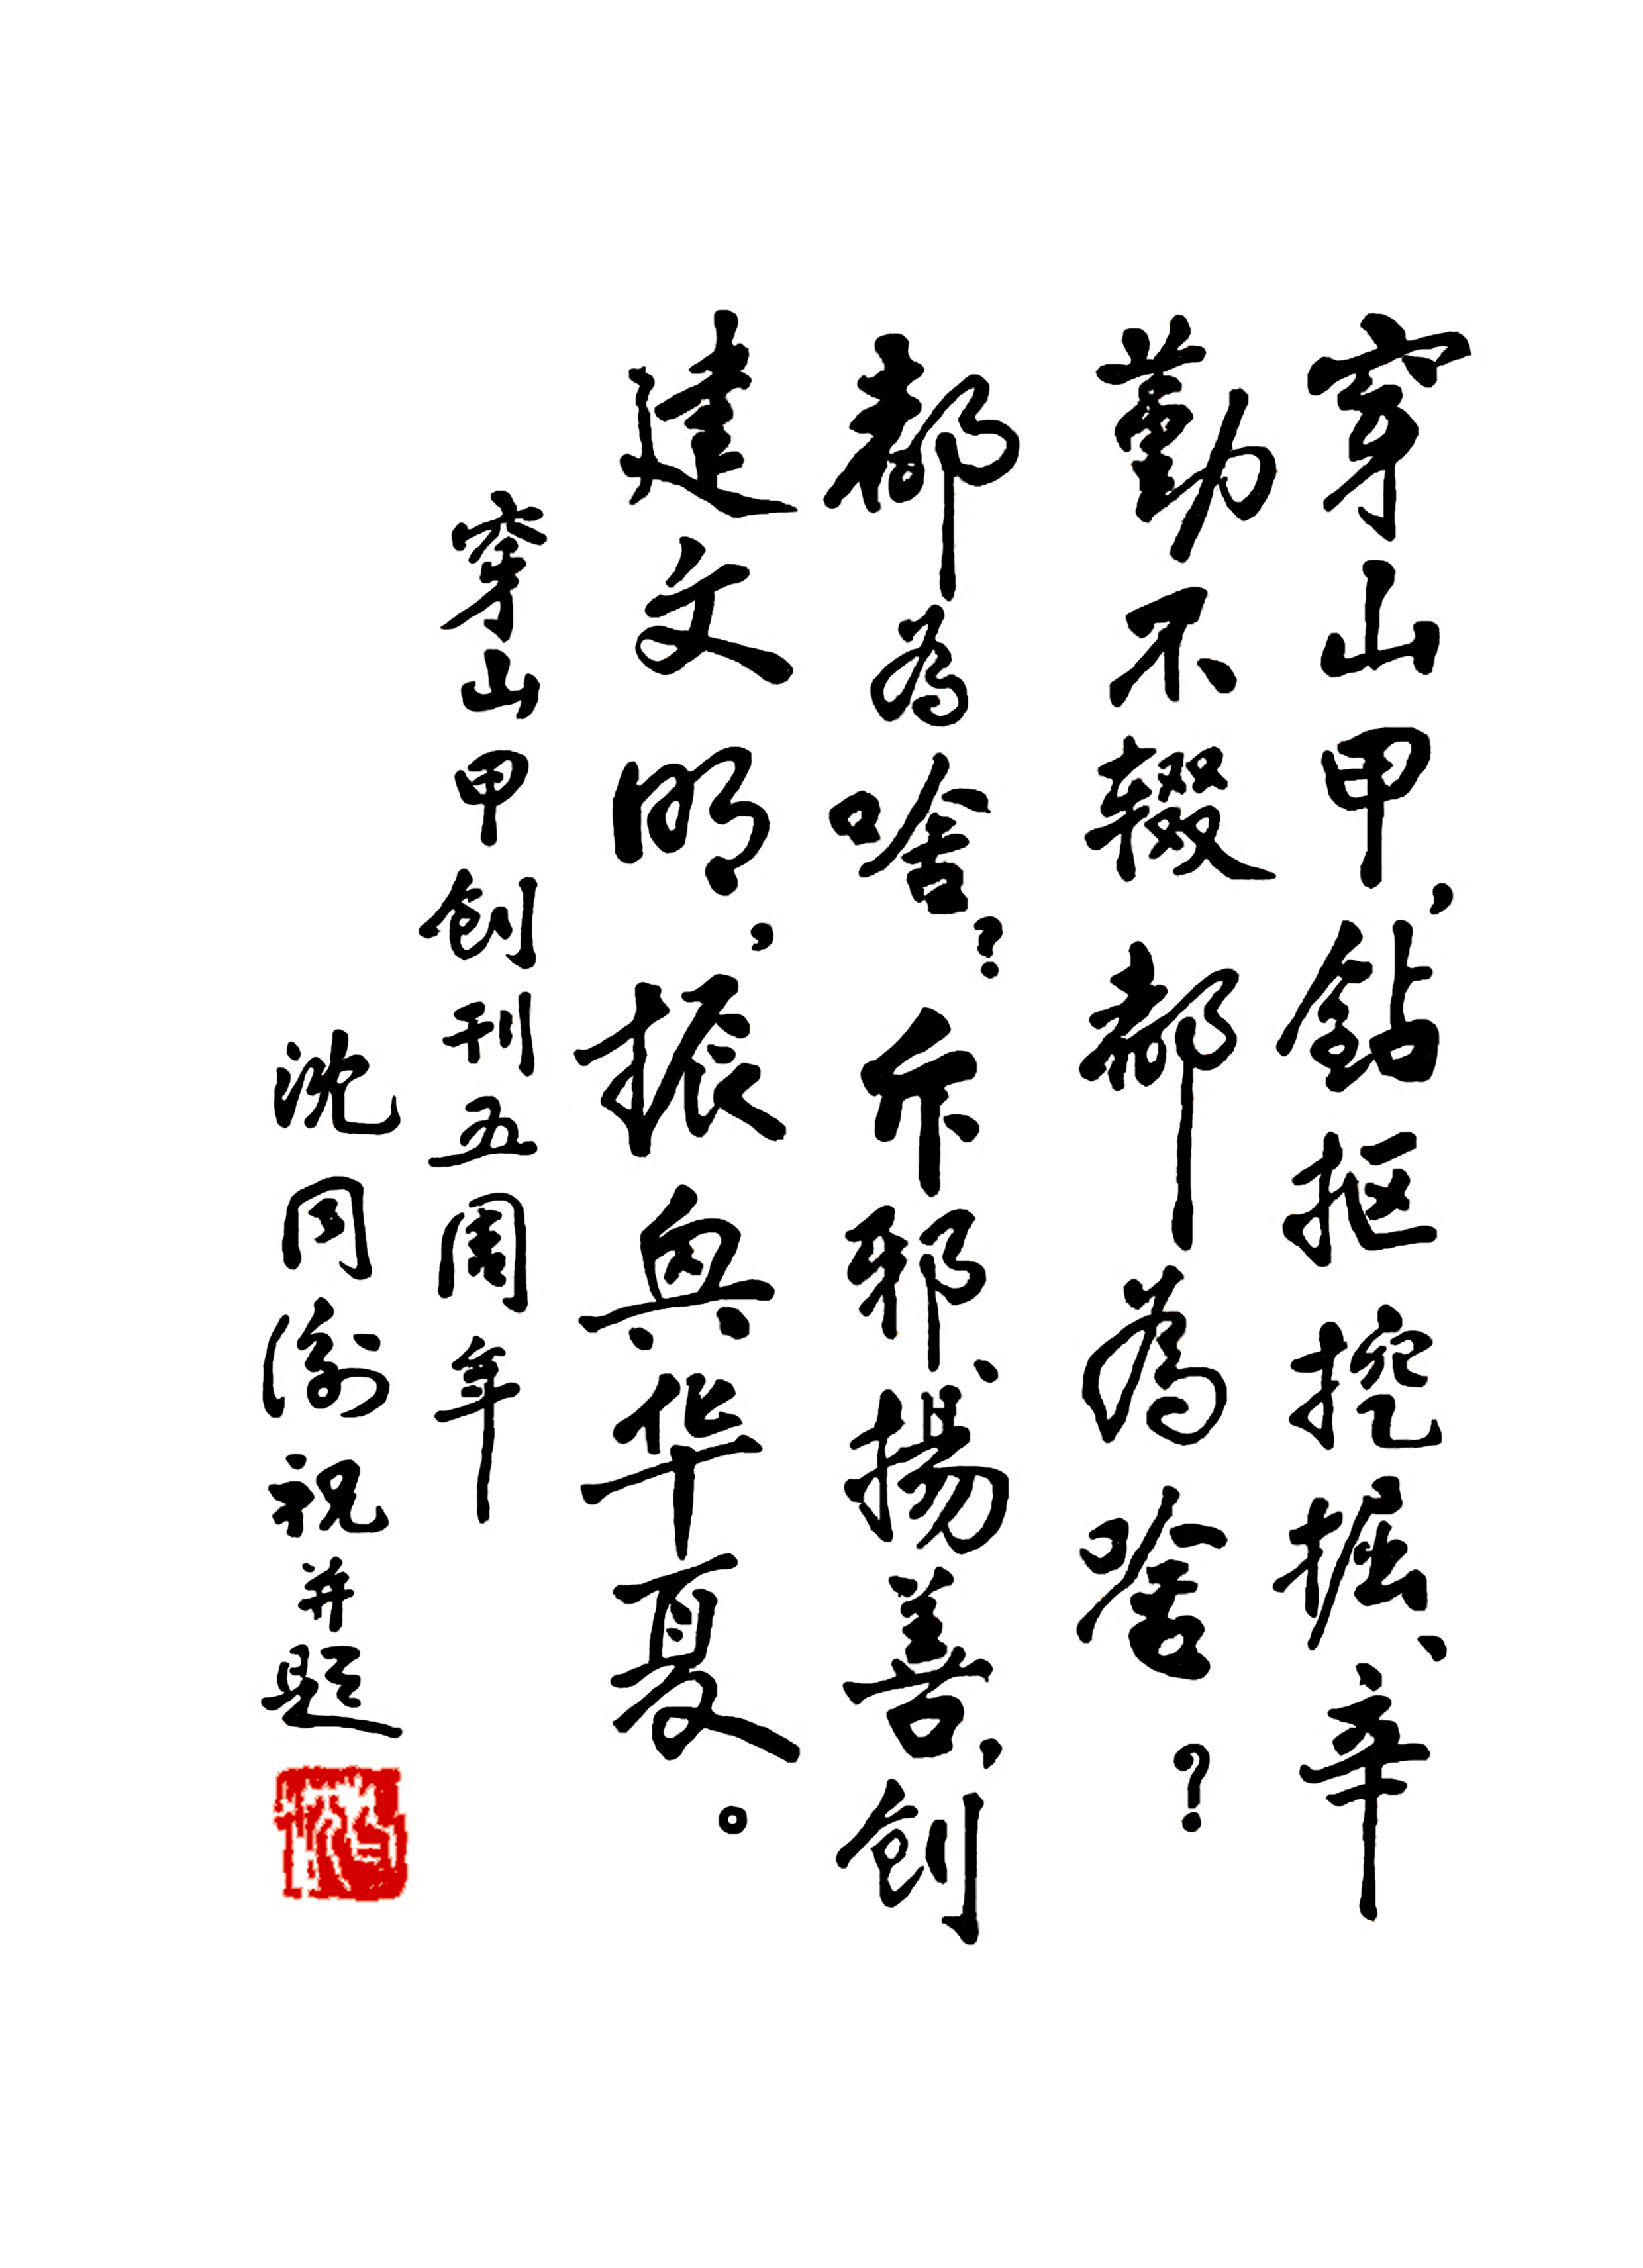 穿山甲，钻抠挖掘、辛
勤不辍都為啥？
都为啥？斥邪、揚善，创
建文明，振興华夏。
穿山甲创刊五周年
沈同衡祝并题